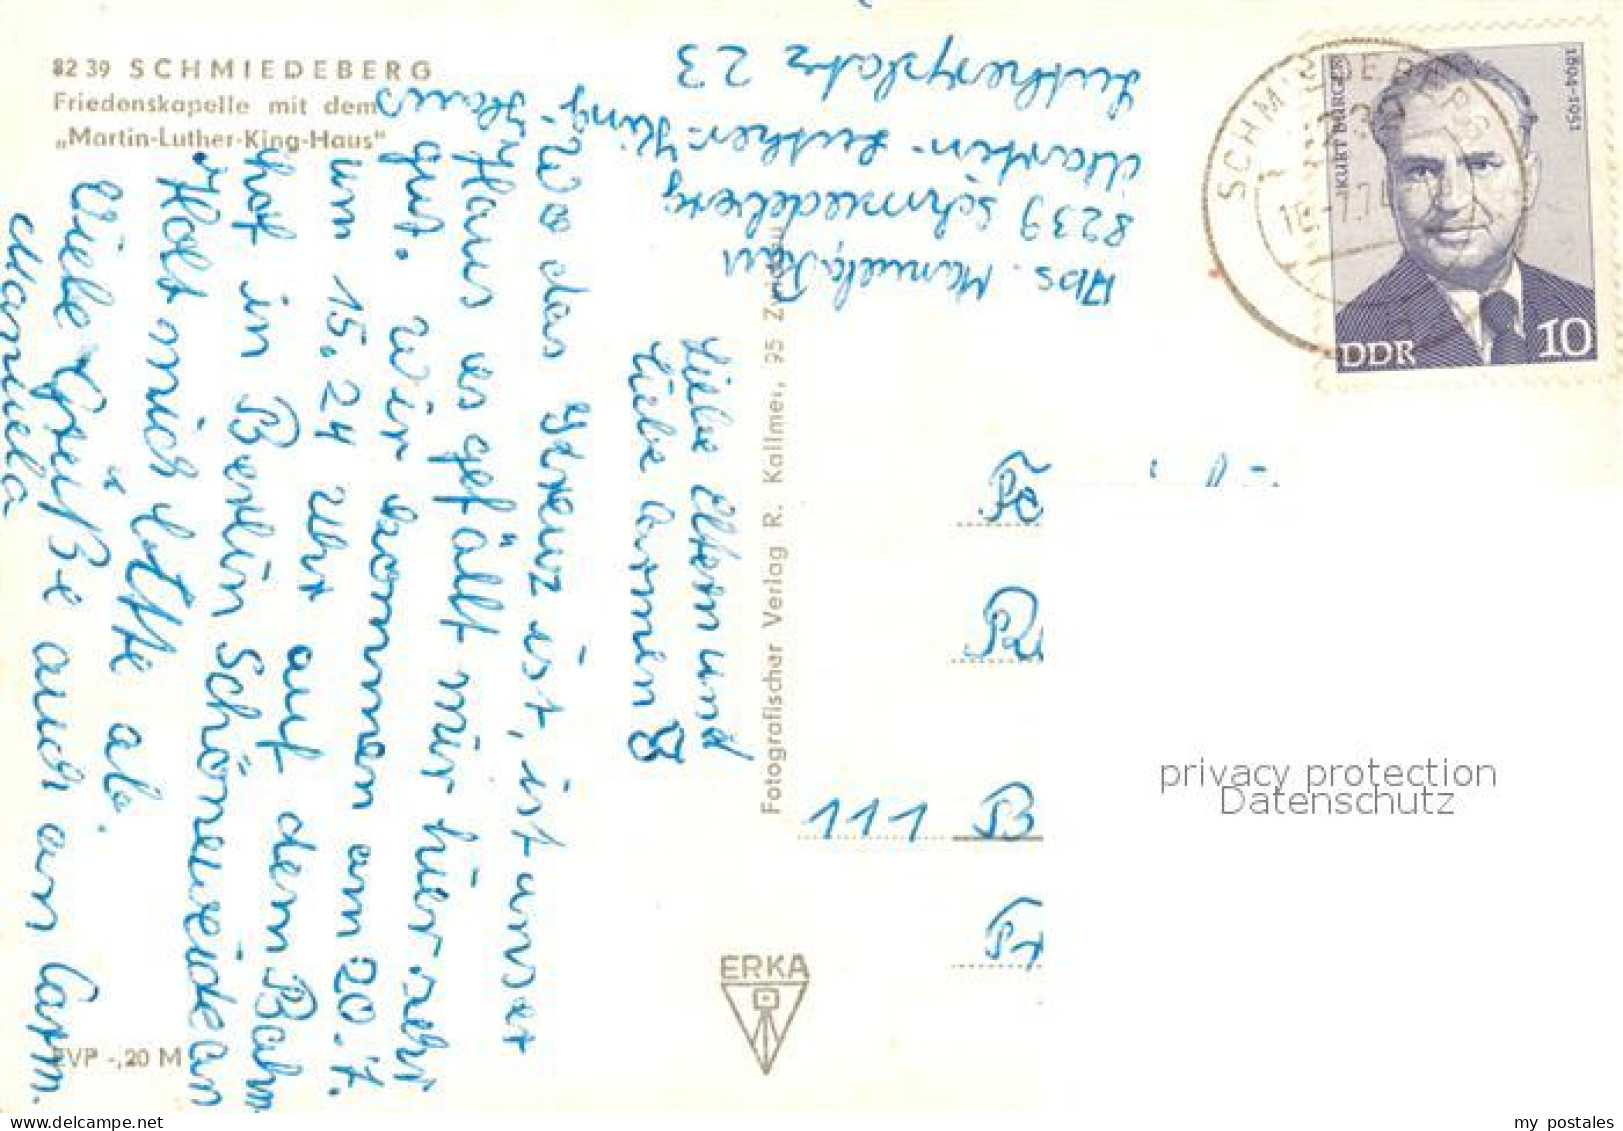 82 39 SCHMIEDEBERG
Friedenskapelle mit dem
„Martin-Luther-King-Haus“
Abs. Manuela
8239 Schmiedeberg
Martin-Luther-King-
Haus
Lutherplatz 23
Liebe Eltern und
liebe Carmen
Wo das Kreuz ist, ist unser
Haus es gefällt mir hier sehr
gut. Wir kommen am 20.7.
um 15.24 Uhr auf dem Bahn
hof in Berlin Schöneweide an
Holt mich bitte ab.
Viele Grüße auch an Carm.
Manuela
EVP -,20 M
Fotografischer Verlag R. Kallmer, 95 Zwickau
ERKA
SCHMIEDEBERG
KURT BÜRGER
1894-1951
DDR 10
111 B
privacy protection
Datenschutz
my postales